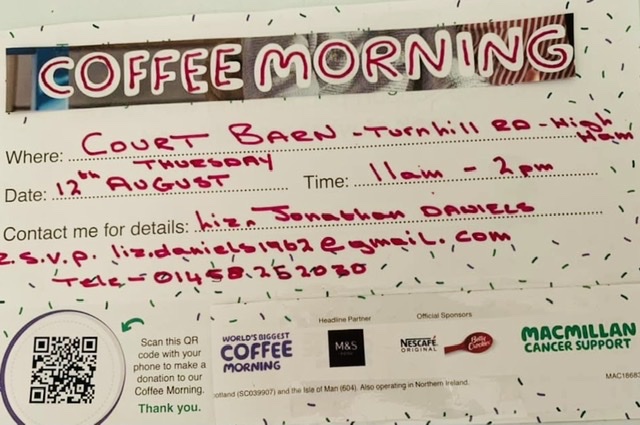 COFFEE MORNING
Where: COURT BARN - Turnhill RD - High Ham
Date: 12th THURSDAY AUGUST Time: 11am - 2pm
Contact me for details: Liz n Jonathan DANIELS
R.S.V.P. liz.daniels1962@gmail.com
Tele - 01458 252030
Scan this QR
code with your
phone to make a
donation to our
Coffee Morning.
Thank you.
WORLD'S BIGGEST
COFFEE
MORNING
Headline Partner
M&S
FOOD
Official Sponsors
NESCAFÉ
ORIGINAL
Betty
Crocker
MACMILLAN
CANCER SUPPORT
otland (SC039907) and the Isle of Man (604). Also operating in Northern Ireland.
MAC18683